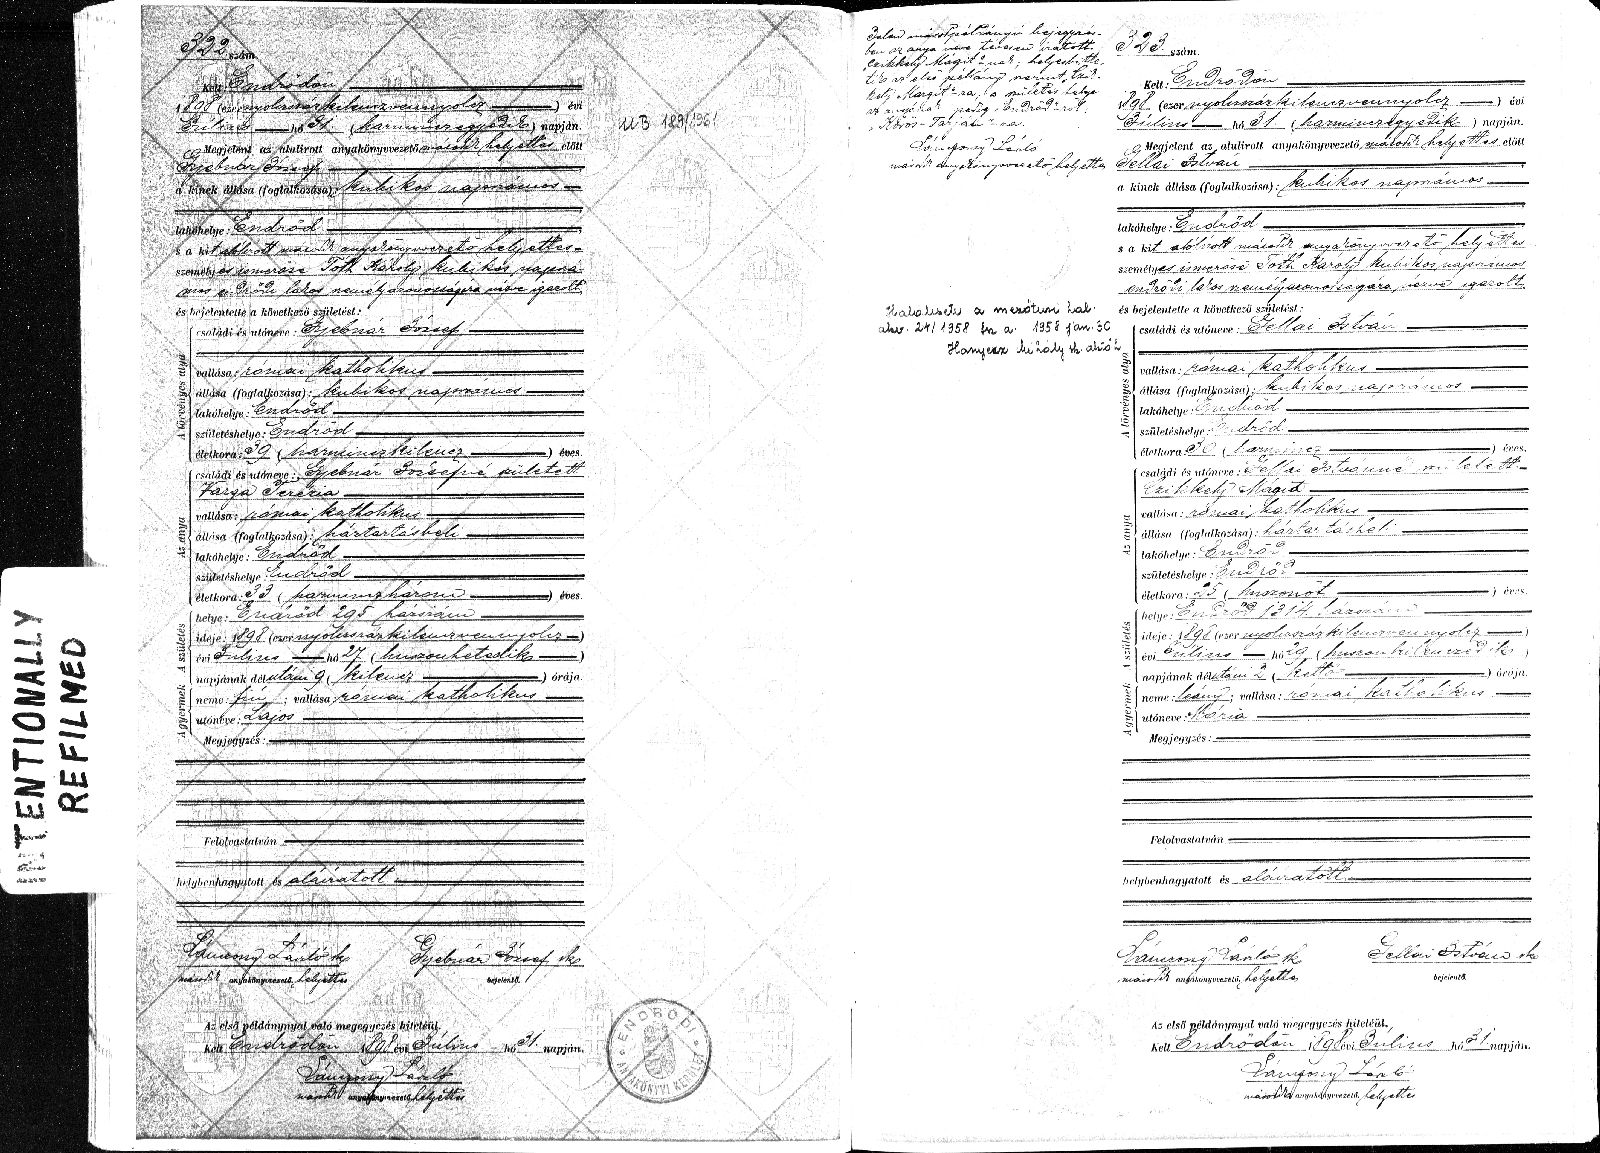 INTENTIONALLY
REFILMED
322 szám
Kelt Endrődön
1898 (ezernyolczszázkilenczvennyolcz) évi
Július hó 31. (harminczegyedik) napján.
Megjelent az alulirott anyakönyvvezető másodh. helyettes előtt
Gyebnár József
a kinek állása (foglalkozása): kubikos napszámos
lakóhelye: Endrőd
s a kit alulirott másodh anyakönyvvezető helyettes
személyes ismerőse Tóth Károly kubikos napszá-
mos endrődi lakos személyazonosságára nézve igazolt,
és bejelentette a következő születést:
A törvényes atya
családi és utóneve: Gyebnár József
vallása: római katholikus
állása (foglalkozása): kubikos napszámos
lakóhelye: Endrőd
születéshelye: Endrőd
életkora: 39 (harminczkilencz) éves.
Az anya
családi és utóneve: Gyebnár Józsefné született
Varga Terézia
vallása: római katholikus
állása (foglalkozása): háztartásbeli
lakóhelye: Endrőd
születéshelye: Endrőd
életkora: 33 (harminczhárom) éves.
A gyermek A születés
helye: Endrőd 295 házszám
ideje: 1898 (ezernyolczszázkilenczvennyolcz)
évi Július hó 27 (huszonhetedik)
napjának délutáni 9 (kilencz) órája.
neme: fiú; vallása: római katholikus
utóneve: Lajos
Megjegyzés:
Felolvastatván
helybenhagyatott és aláiratott
László k
Gyebnár József sk
másodh anyakönyvvezető, helyettes
bejelentő.
Az első példánynyal való megegyezés hiteléül.
Kelt Endrődön 1898 évi Július hó 31. napján.
László
másodh anyakönyvvezető, helyettes
ENDRŐDI ANYAKÖNYVI KERÜLET
Jelen másodpéldányú bejegyzés-
ben az anya neve tévesen iratott
László
másodh anyakönyvvezető helyettes
Halálesete a mezőturi hal.
akv. 24/1958 fsz a. 1958 jan. 30
Mihály
323 szám.
Kelt: Endrődön
1898 (ezernyolczszázkilenczvennyolcz) évi
Július hó 31. (harminczegyedik) napján.
Megjelent az alulirott anyakönyvvezető, másodh helyettes előtt
Gellai István
a kinek állása (foglalkozása): kubikos napszámos
lakóhelye: Endrőd
s a kit alulirott másodh anyakönyvvezető helyettes
személyes ismerőse Tóth Károly kubikos napszámos
endrődi lakos személyazonosságára nézve igazolt,
és bejelentette a következő születést:
A törvényes atya
családi és utóneve: Gellai István
vallása: római katholikus
állása (foglalkozása): kubikos napszámos
lakóhelye: Endrőd
születéshelye: Endrőd
életkora: 30 (harmincz) éves.
Az anya
családi és utóneve: Gellai Istvánné született
Czikkely Mágit
vallása: római katholikus
állása (foglalkozása): háztartásbeli
lakóhelye: Endrőd
születéshelye: Endrőd
életkora: 25 (huszonöt) éves.
A gyermek A születés
helye: Endrőd 1314 házszám
ideje: 1898 (ezernyolczszázkilenczvennyolcz)
évi Július hó 29 (huszonkilenczedik)
napjának délutáni 2 (kettő) órája.
neme: leány; vallása: római katholikus
utóneve: Mária
Megjegyzés:
Felolvastatván
helybenhagyatott és aláiratott
László sk
Gellai István sk
másodh anyakönyvvezető, helyettes
bejelentő.
Az első példánynyal való megegyezés hiteléül.
Kelt Endrődön 1898 évi Július hó 31 napján.
László
másodh anyakönyvvezető, helyettes